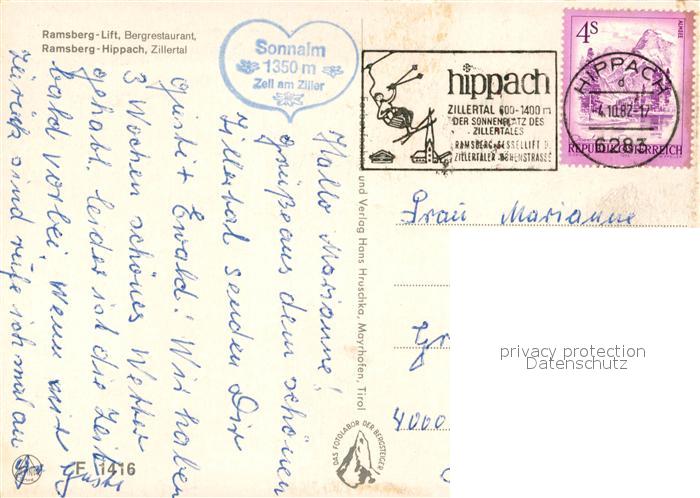 Ramsberg-Lift, Bergrestaurant,
Ramsberg-Hippach, Zillertal
Sonnalm
1350 m
Zell am Ziller
hippach
ZILLERTAL 600-1400 m
DER SONNENPLATZ DES
ZILLERTALES
RAMSBERG-SESSELLIFT
ZILLERTALER HÖHENSTRASSE
4S
ALMSEE
REPUBLIK ÖSTERREICH
HIPPACH
d
-4.10.82-17
6283
Hallo Marianne!
Grüße aus dem schönen
Zillertal senden Dir
Gusti + Ewald! Wir haben
3 Wochen schönes Wetter
gehabt. leider ist die Zeit
bald vorbei. Wenn wir
zurück sind rufe ich mal an
Gusti
und Verlag Hans Hruschka, Mayrhofen, Tirol
Frau Marianne
4000
privacy protection
Datenschutz
DAS FOTOLABOR DER BERGSTEIGER
F 1416